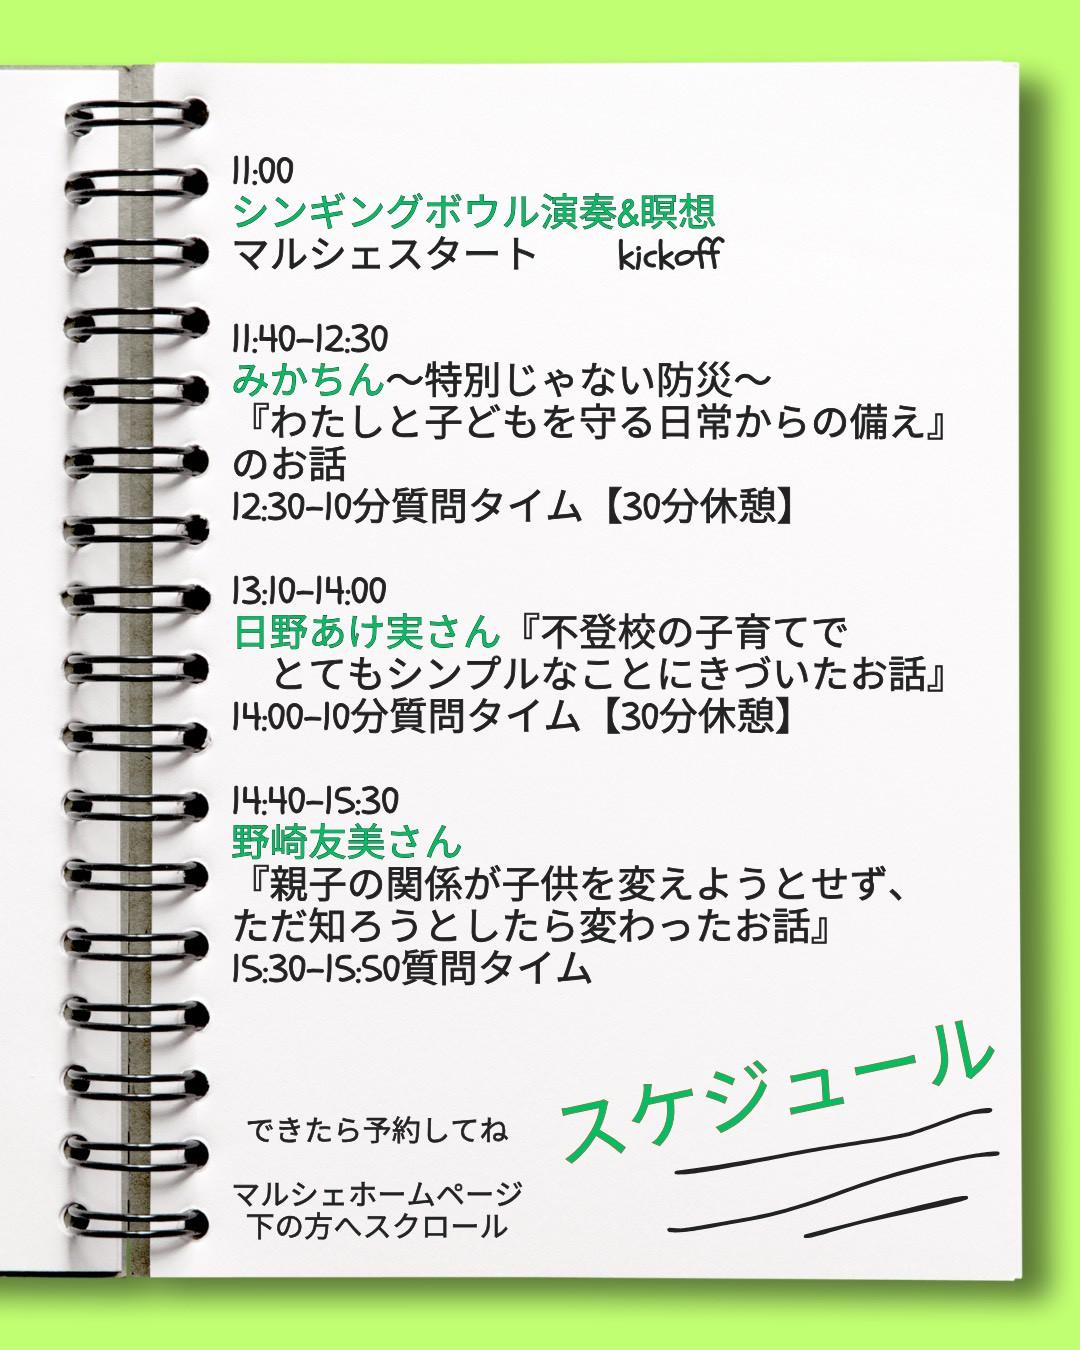 11:00
シンギングボウル演奏&瞑想
マルシェスタート kickoff
11:40-12:30
みかちん〜特別じゃない防災〜
『わたしと子どもを守る日常からの備え』
のお話
12:30-10分質問タイム【30分休憩】
13:10-14:00
日野あけ実さん『不登校の子育てで
とてもシンプルなことにきづいたお話』
14:00-10分質問タイム【30分休憩】
14:40-15:30
野崎友美さん
『親子の関係が子供を変えようとせず、
ただ知ろうとしたら変わったお話』
15:30-15:50質問タイム
スケジュール
できたら予約してね
マルシェホームページ
下の方へスクロール